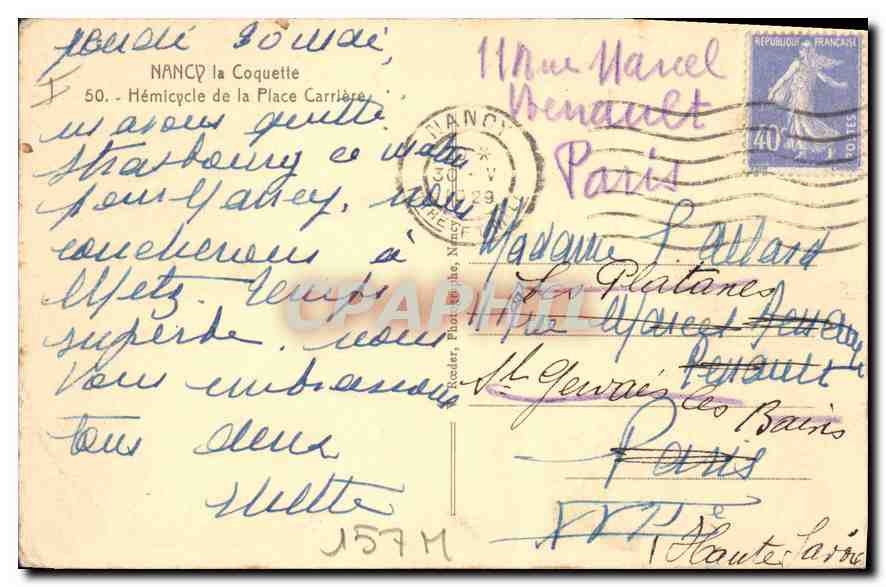 jeudi 30 mai,
NANCY la Coquette
50. - Hémicycle de la Place Carrière
avons quitté
Strasbourg ce matin
pour Nancy, nous
coucherons à
Metz. Temps
superbe. nous
vous embrassons
tous deux
157 M
Rœder, Photographe, Nancy
NANCY
30 - V
1929
RÉPUBLIQUE FRANÇAISE
40c
POSTES
11 Rue Marcel
Renault
Paris
Madame Lallard
Les Platanes
11 Rue Marcel Renault
Renault
St Gervais les Bains
Paris
XVIIe
(Haute Savoie
CPAPHIL